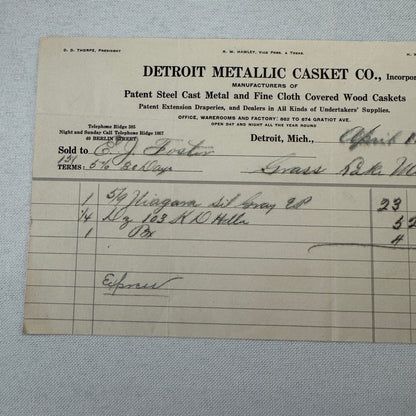 D. D. THORPE, PRESIDENT R. W. HAWLEY, VICE PRES. & TREAS.
DETROIT METALLIC CASKET CO., Incorpor
MANUFACTURERS OF
Patent Steel Cast Metal and Fine Cloth Covered Wood Caskets
Patent Extension Draperies, and Dealers in All Kinds of Undertakers' Supplies.
OFFICE, WAREROOMS AND FACTORY: 562 TO 574 GRATIOT AVE.
OPEN DAY AND NIGHT ALL THE YEAR ROUND
Telephone Ridge 595
Night and Sunday Call Telephone Ridge 1967
49 BERLIN STREET
Detroit, Mich., April
Sold to E. J. Foster
151
TERMS: 5% 30 Days Grass Lake Mi
1 5/9 Niagara Sil Gray EP 23
1/4 Dz 103 H D Hdls 52
1 Bx 4
Express